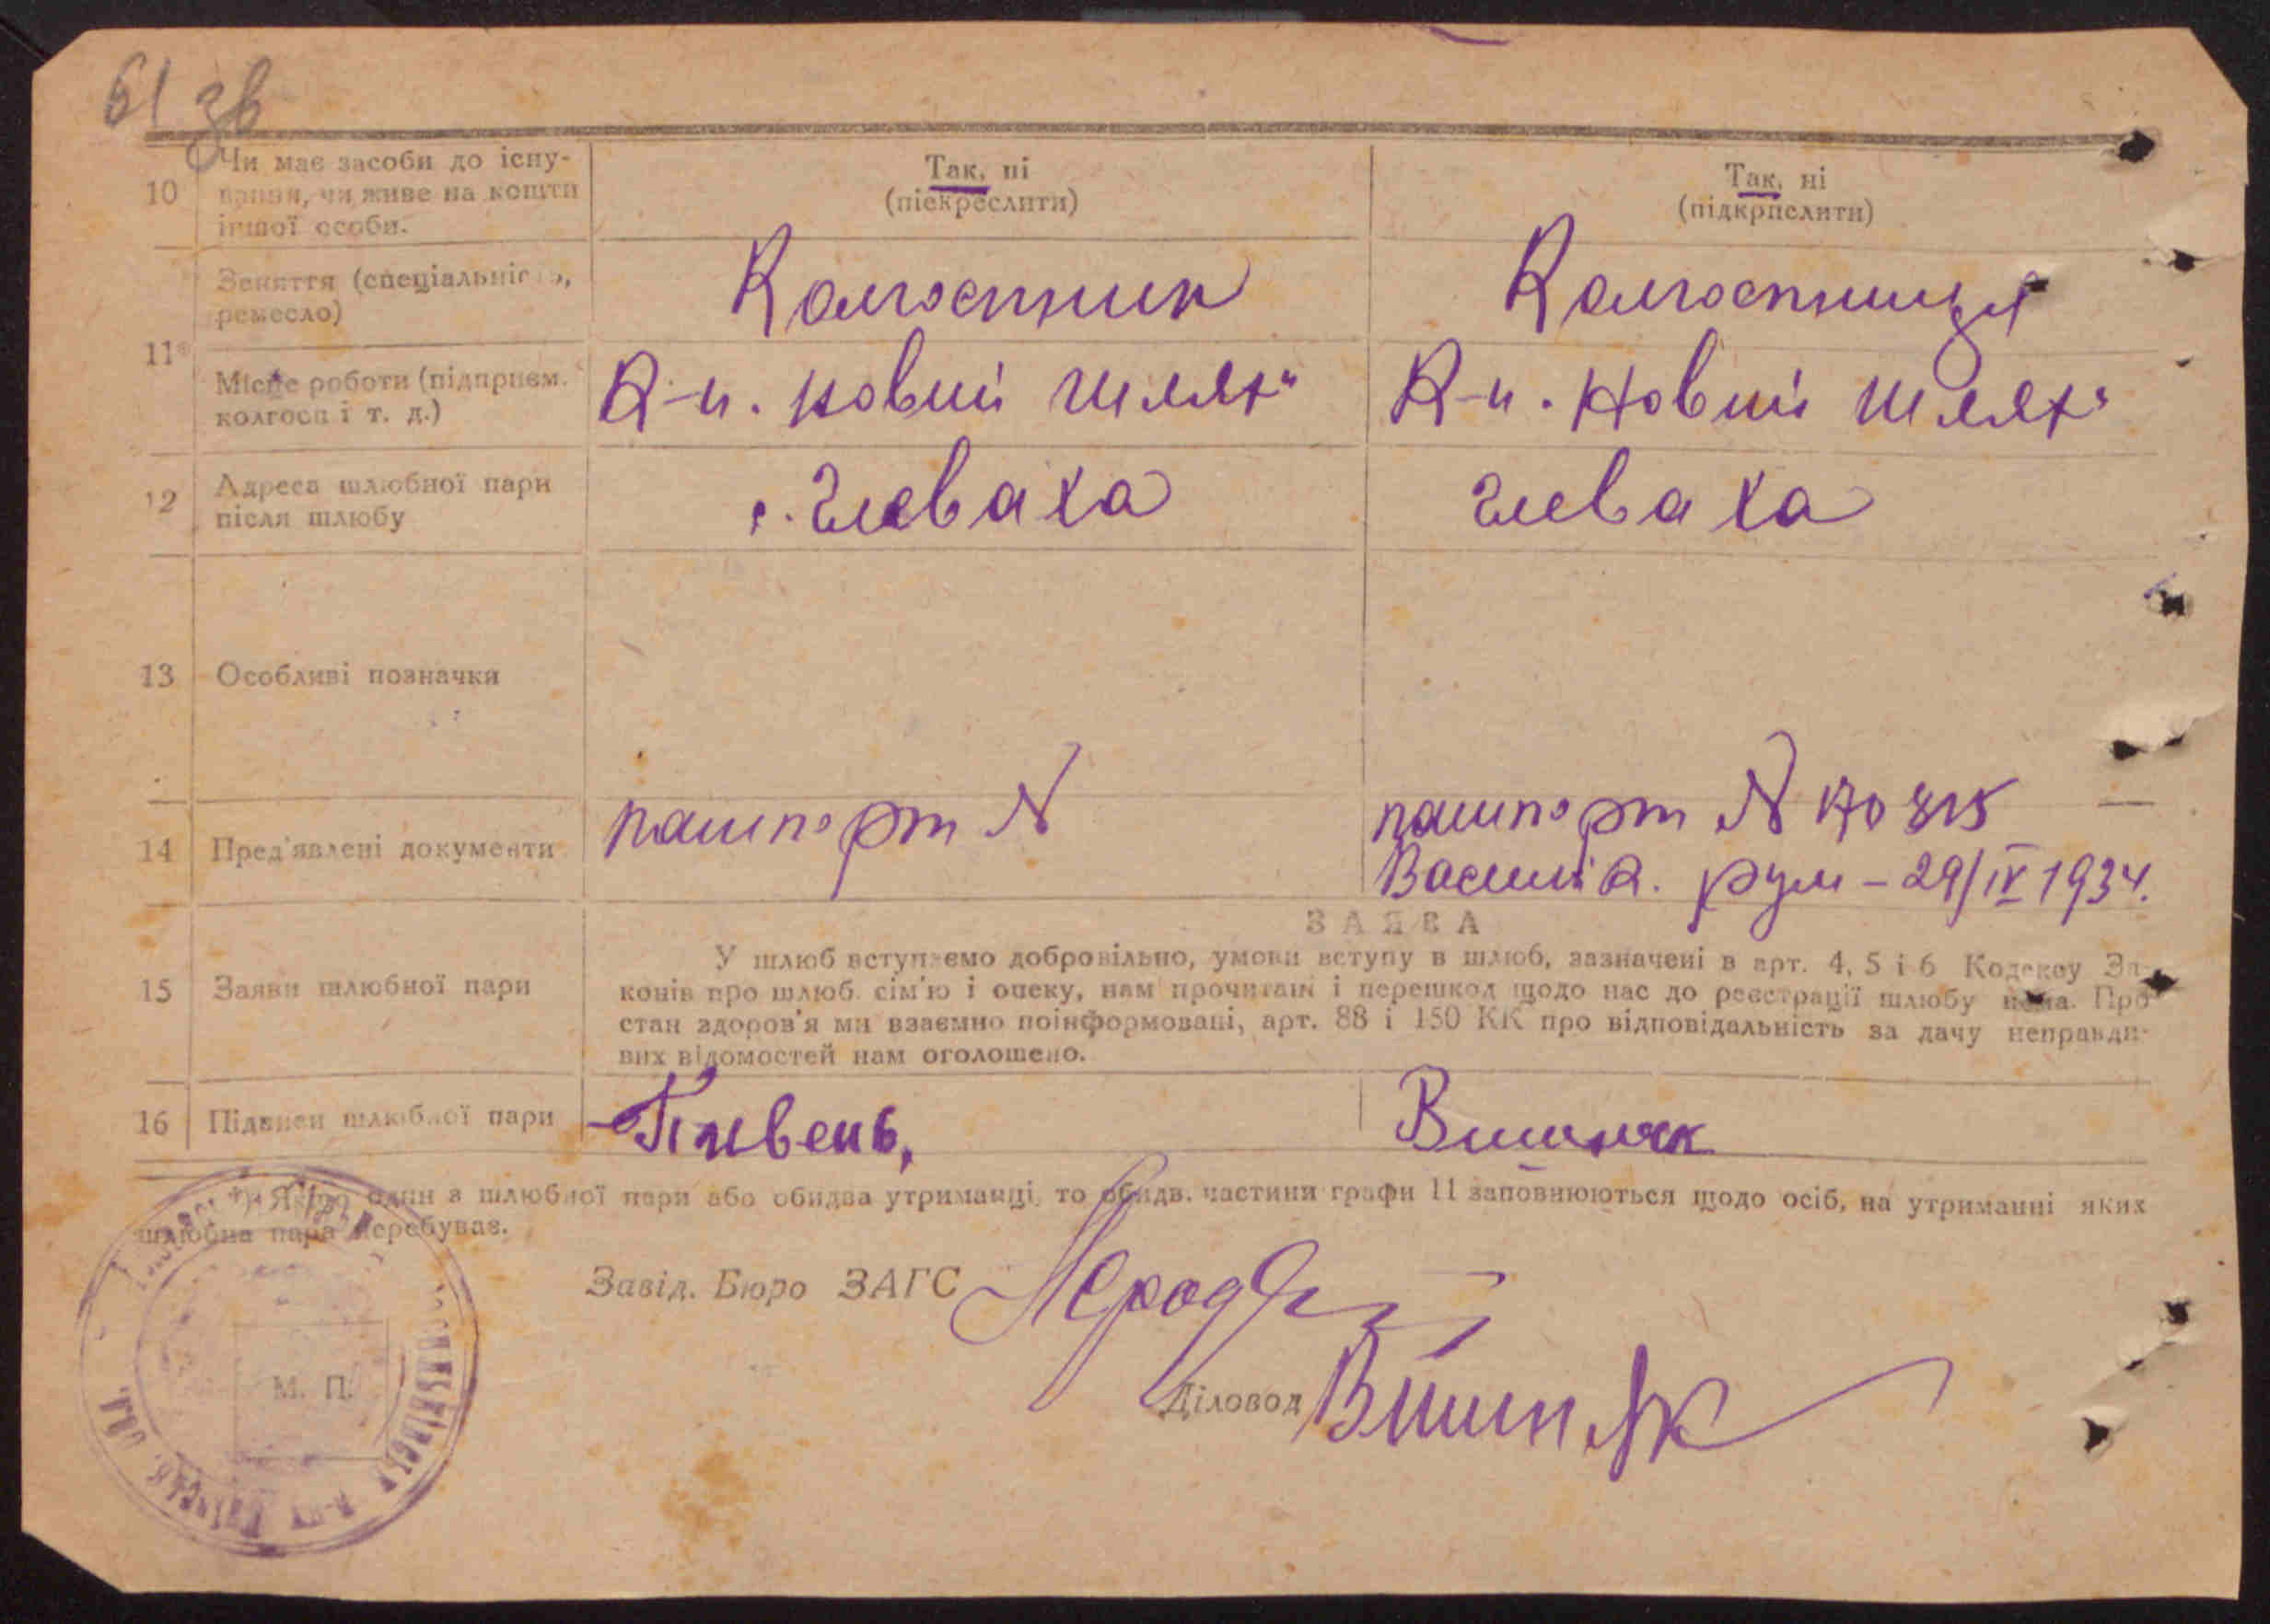 61 зв
10
Чи має засоби до існу-
вання, чи живе на кошти
іншої особи.
Так, ні
(піекреслити)
Так, ні
(підкрислити)
11*
Зеняття (спеціальність,
ремесло)
Колгоспник
Колгоспниця
Місце роботи (підприєм.
колгосп і т. д.)
К-п. Новий шлях"
К-п. Новий шлях"
12
Адреса шлюбної пари
після шлюбу
с. Глеваха
Глеваха
13
Особливі позначки
14
Пред'явлені документи
пашпорт N
пашпорт N
Васильк. рум – 29/IV 1934.
ЗАЯВА
15
Заяви шлюбної пари
У шлюб вступаємо добровільно, умови вступу в шлюб, зазначені в арт. 4, 5 і 6 Кодексу За-
конів про шлюб. сім'ю і опеку, нам прочитані і перешкод щодо нас до реєстрації шлюбу нема. Про
стан здоров'я ми взаємно поінформовані, арт. 88 і 150 КК про відповідальність за дачу неправди-
вих відомостей нам оголошено.
16
Підписи шлюбної пари
Півень,
Вишняк
* Якщо один з шлюбної пари або обидва утриманці, то обидв. частини графи 11 заповнюються щодо осіб, на утриманні яких
шлюбна пара перебуває.
Завід. Бюро ЗАГС
М. П.
Діловод Вишняк